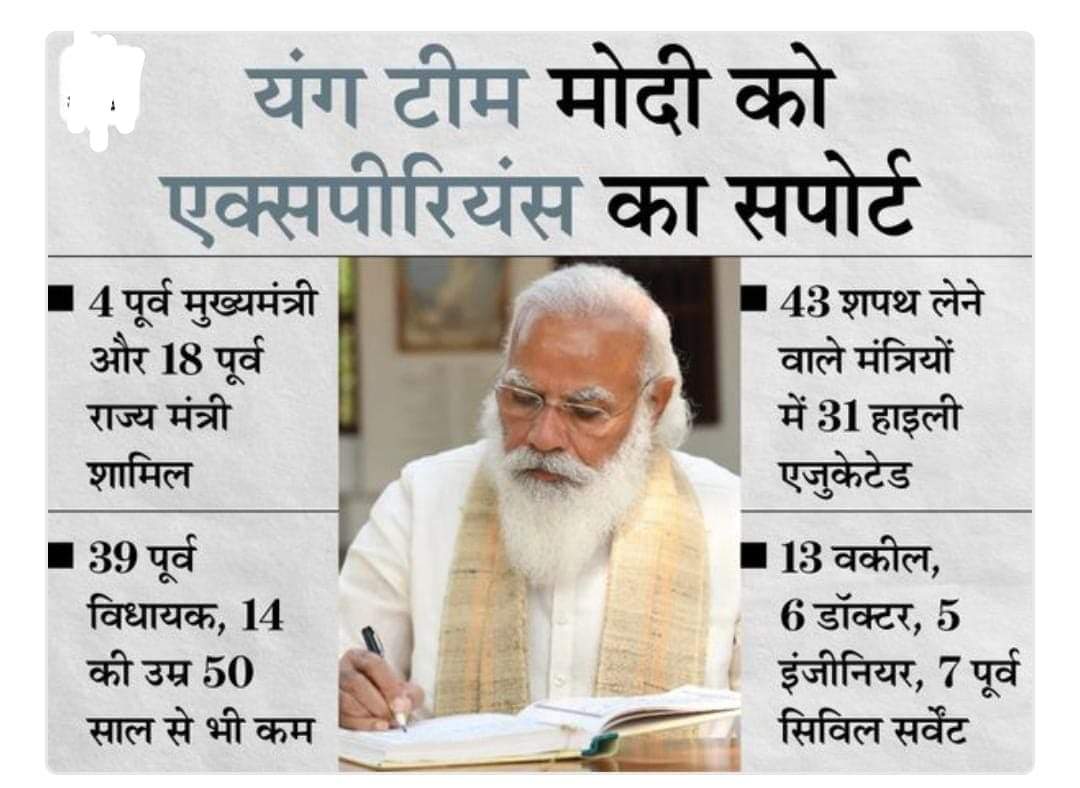 यंग टीम मोदी को
एक्सपीरियंस का सपोर्ट
4 पूर्व मुख्यमंत्री
और 18 पूर्व
राज्य मंत्री
शामिल
39 पूर्व
विधायक, 14
की उम्र 50
साल से भी कम
43 शपथ लेने
वाले मंत्रियों
में 31 हाइली
एजुकेटेड
13 वकील,
6 डॉक्टर, 5
इंजीनियर, 7 पूर्व
सिविल सर्वेंट